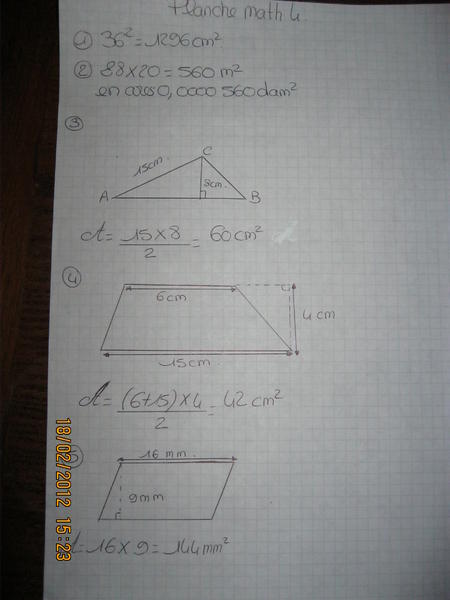 Planche math 4.
① 36² = 1296 cm²
② 28 x 20 = 560 m²
en ares 0,0000 560 dam²
③
C
15 cm.
8 cm.
A
B
A = 15 x 8 / 2 = 60 cm²
④
6 cm
4 cm
15 cm
A = (6+15) x 4 / 2 = 42 cm²
16 mm.
9 mm
A = 16 x 9 = 144 mm²
18/02/2012 15:23